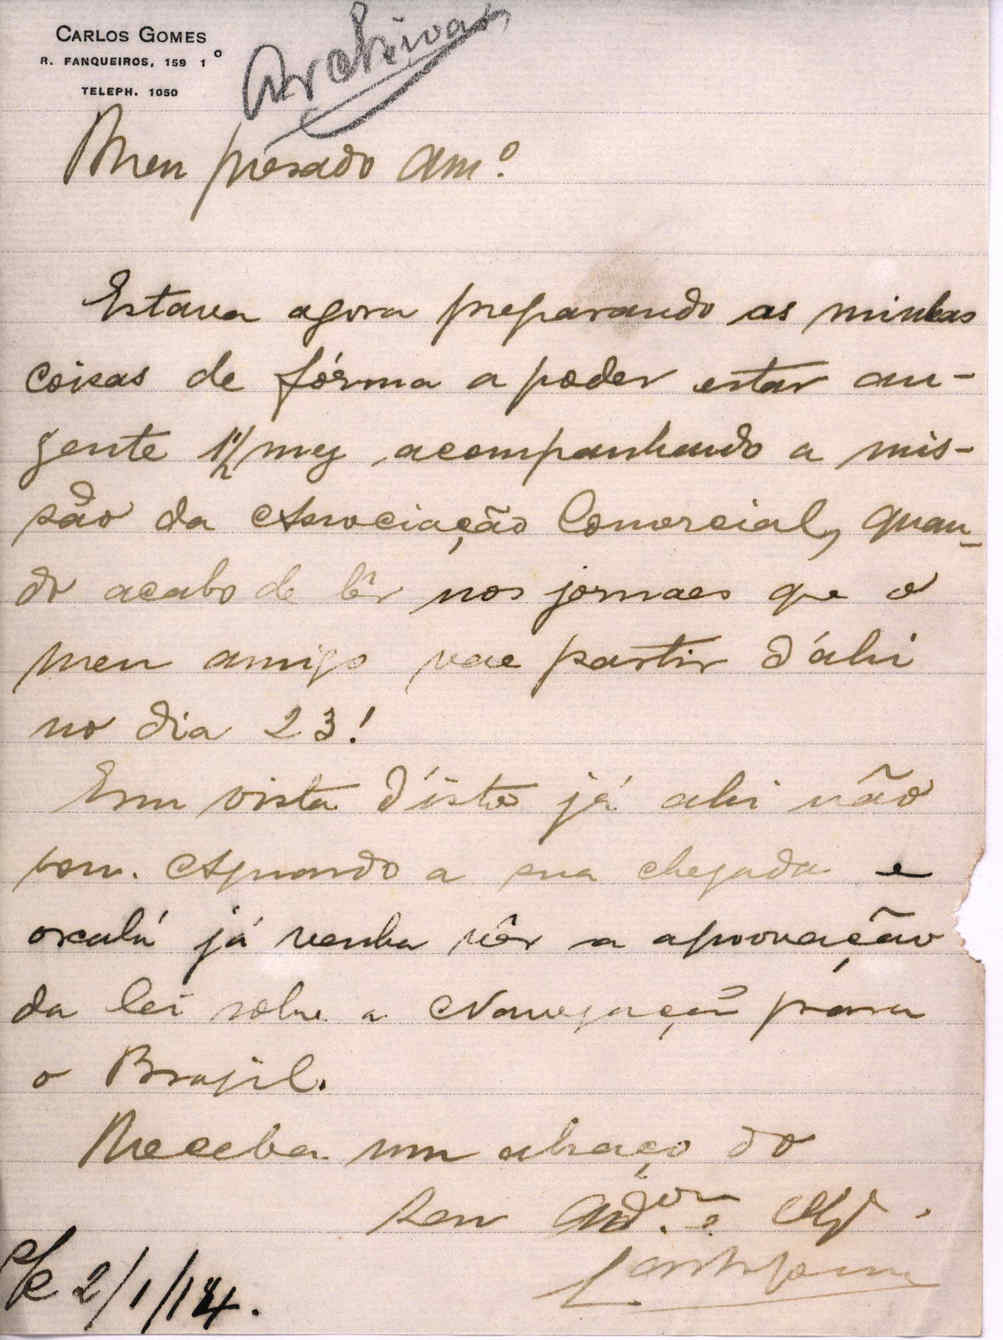 CARLOS GOMES
R. FANQUEIROS, 159 1º
TELEPH. 1050
Archivar
Meu presado Amº.
Estava agora preparando as minhas
coisas de fórma a poder estar au-
zente 1 1/2 mez acompanhando a mis-
são da Associação Comercial, quan-
do acabo de lêr nos jornaes que o
meu amigo vae partir d'ahi
no dia 23!
Em vista d'isto já ahi não
vou. Aguardo a sua chegada e
oxalá já venha vêr a aprovação
da lei sobre a Navegação para
o Brazil.
Receba um abraço do
seu Adºr. e Obgº.
2/1/14.